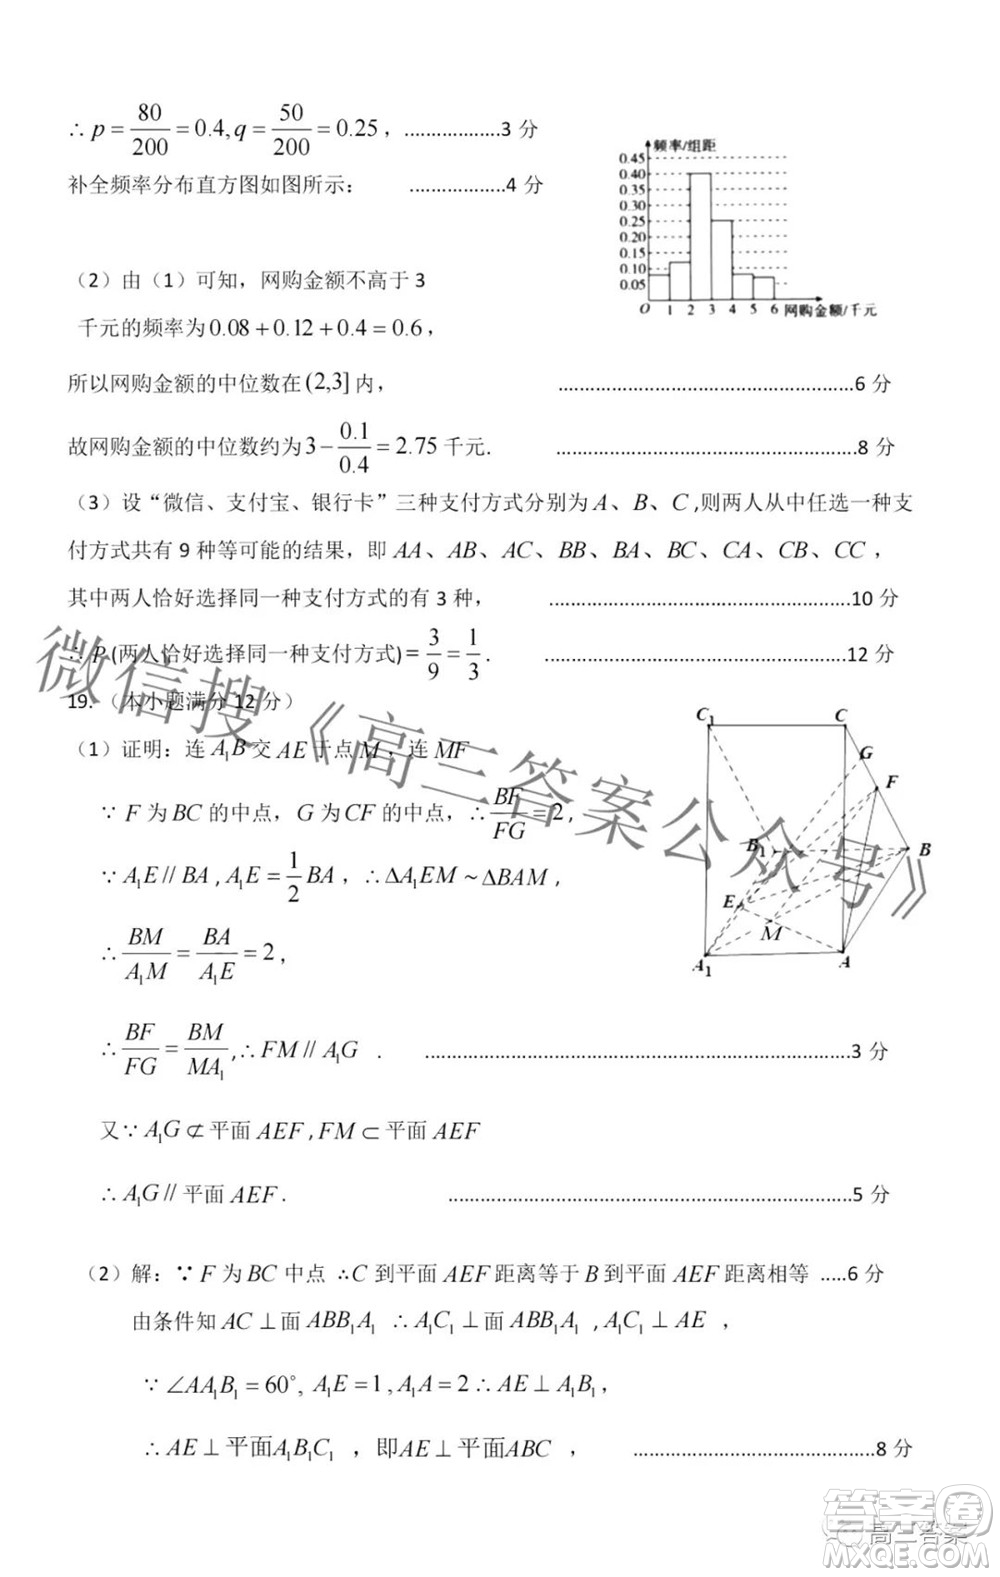 ∴ p = 80/200 = 0.4, q = 50/200 = 0.25 , ………………3 分
补全频率分布直方图如图所示: ………………4 分
频率/组距
0.45
0.40
0.35
0.30
0.25
0.20
0.15
0.10
0.05
O 1 2 3 4 5 6 网购金额/千元
（2）由（1）可知，网购金额不高于 3
千元的频率为 0.08 + 0.12 + 0.4 = 0.6 ,
所以网购金额的中位数在 (2,3] 内， ………………………………………………6 分
故网购金额的中位数约为 3 − 0.1/0.4 = 2.75 千元. ………………………………………………8 分
（3）设“微信、支付宝、银行卡”三种支付方式分别为 A、B、C ,则两人从中任选一种支
付方式共有 9 种等可能的结果，即 AA、AB、AC、BB、BA、BC、CA、CB、CC ，
其中两人恰好选择同一种支付方式的有 3 种， ………………………………………………10 分
∴ P (两人恰好选择同一种支付方式) = 3/9 = 1/3 . ………………………………………………12 分
19. （本小题满分 12 分）
（1）证明：连 A₁B 交 AE 于点 M ，连 MF
∵ F 为 BC 的中点，G 为 CF 的中点，∴ BF/FG = 2 ,
∵ A₁E // BA , A₁E = 1/2 BA ，∴ ΔA₁EM ~ ΔBAM ,
∴ BM/A₁M = BA/A₁E = 2 ,
∴ BF/FG = BM/MA₁ ,∴ FM // A₁G . ………………………………………………3 分
又∵ A₁G ⊄ 平面 AEF , FM ⊂ 平面 AEF
∴ A₁G // 平面 AEF . ………………………………………………5 分
C₁ C
G
F
B₁ B
E
M
A₁ A
（2）解：∵ F 为 BC 中点 ∴ C 到平面 AEF 距离等于 B 到平面 AEF 距离相等 .....6 分
由条件知 AC ⊥ 面 ABB₁A₁ ∴ A₁C₁ ⊥ 面 ABB₁A₁ , A₁C₁ ⊥ AE ，
∵ ∠AA₁B₁ = 60°, A₁E = 1 , A₁A = 2 ∴ AE ⊥ A₁B₁ ,
∴ AE ⊥ 平面A₁B₁C₁ ，即AE ⊥ 平面ABC ， ………………………………8 分
微信搜《高三答案公众号》
答案圈
高三答案
MXQE.COM